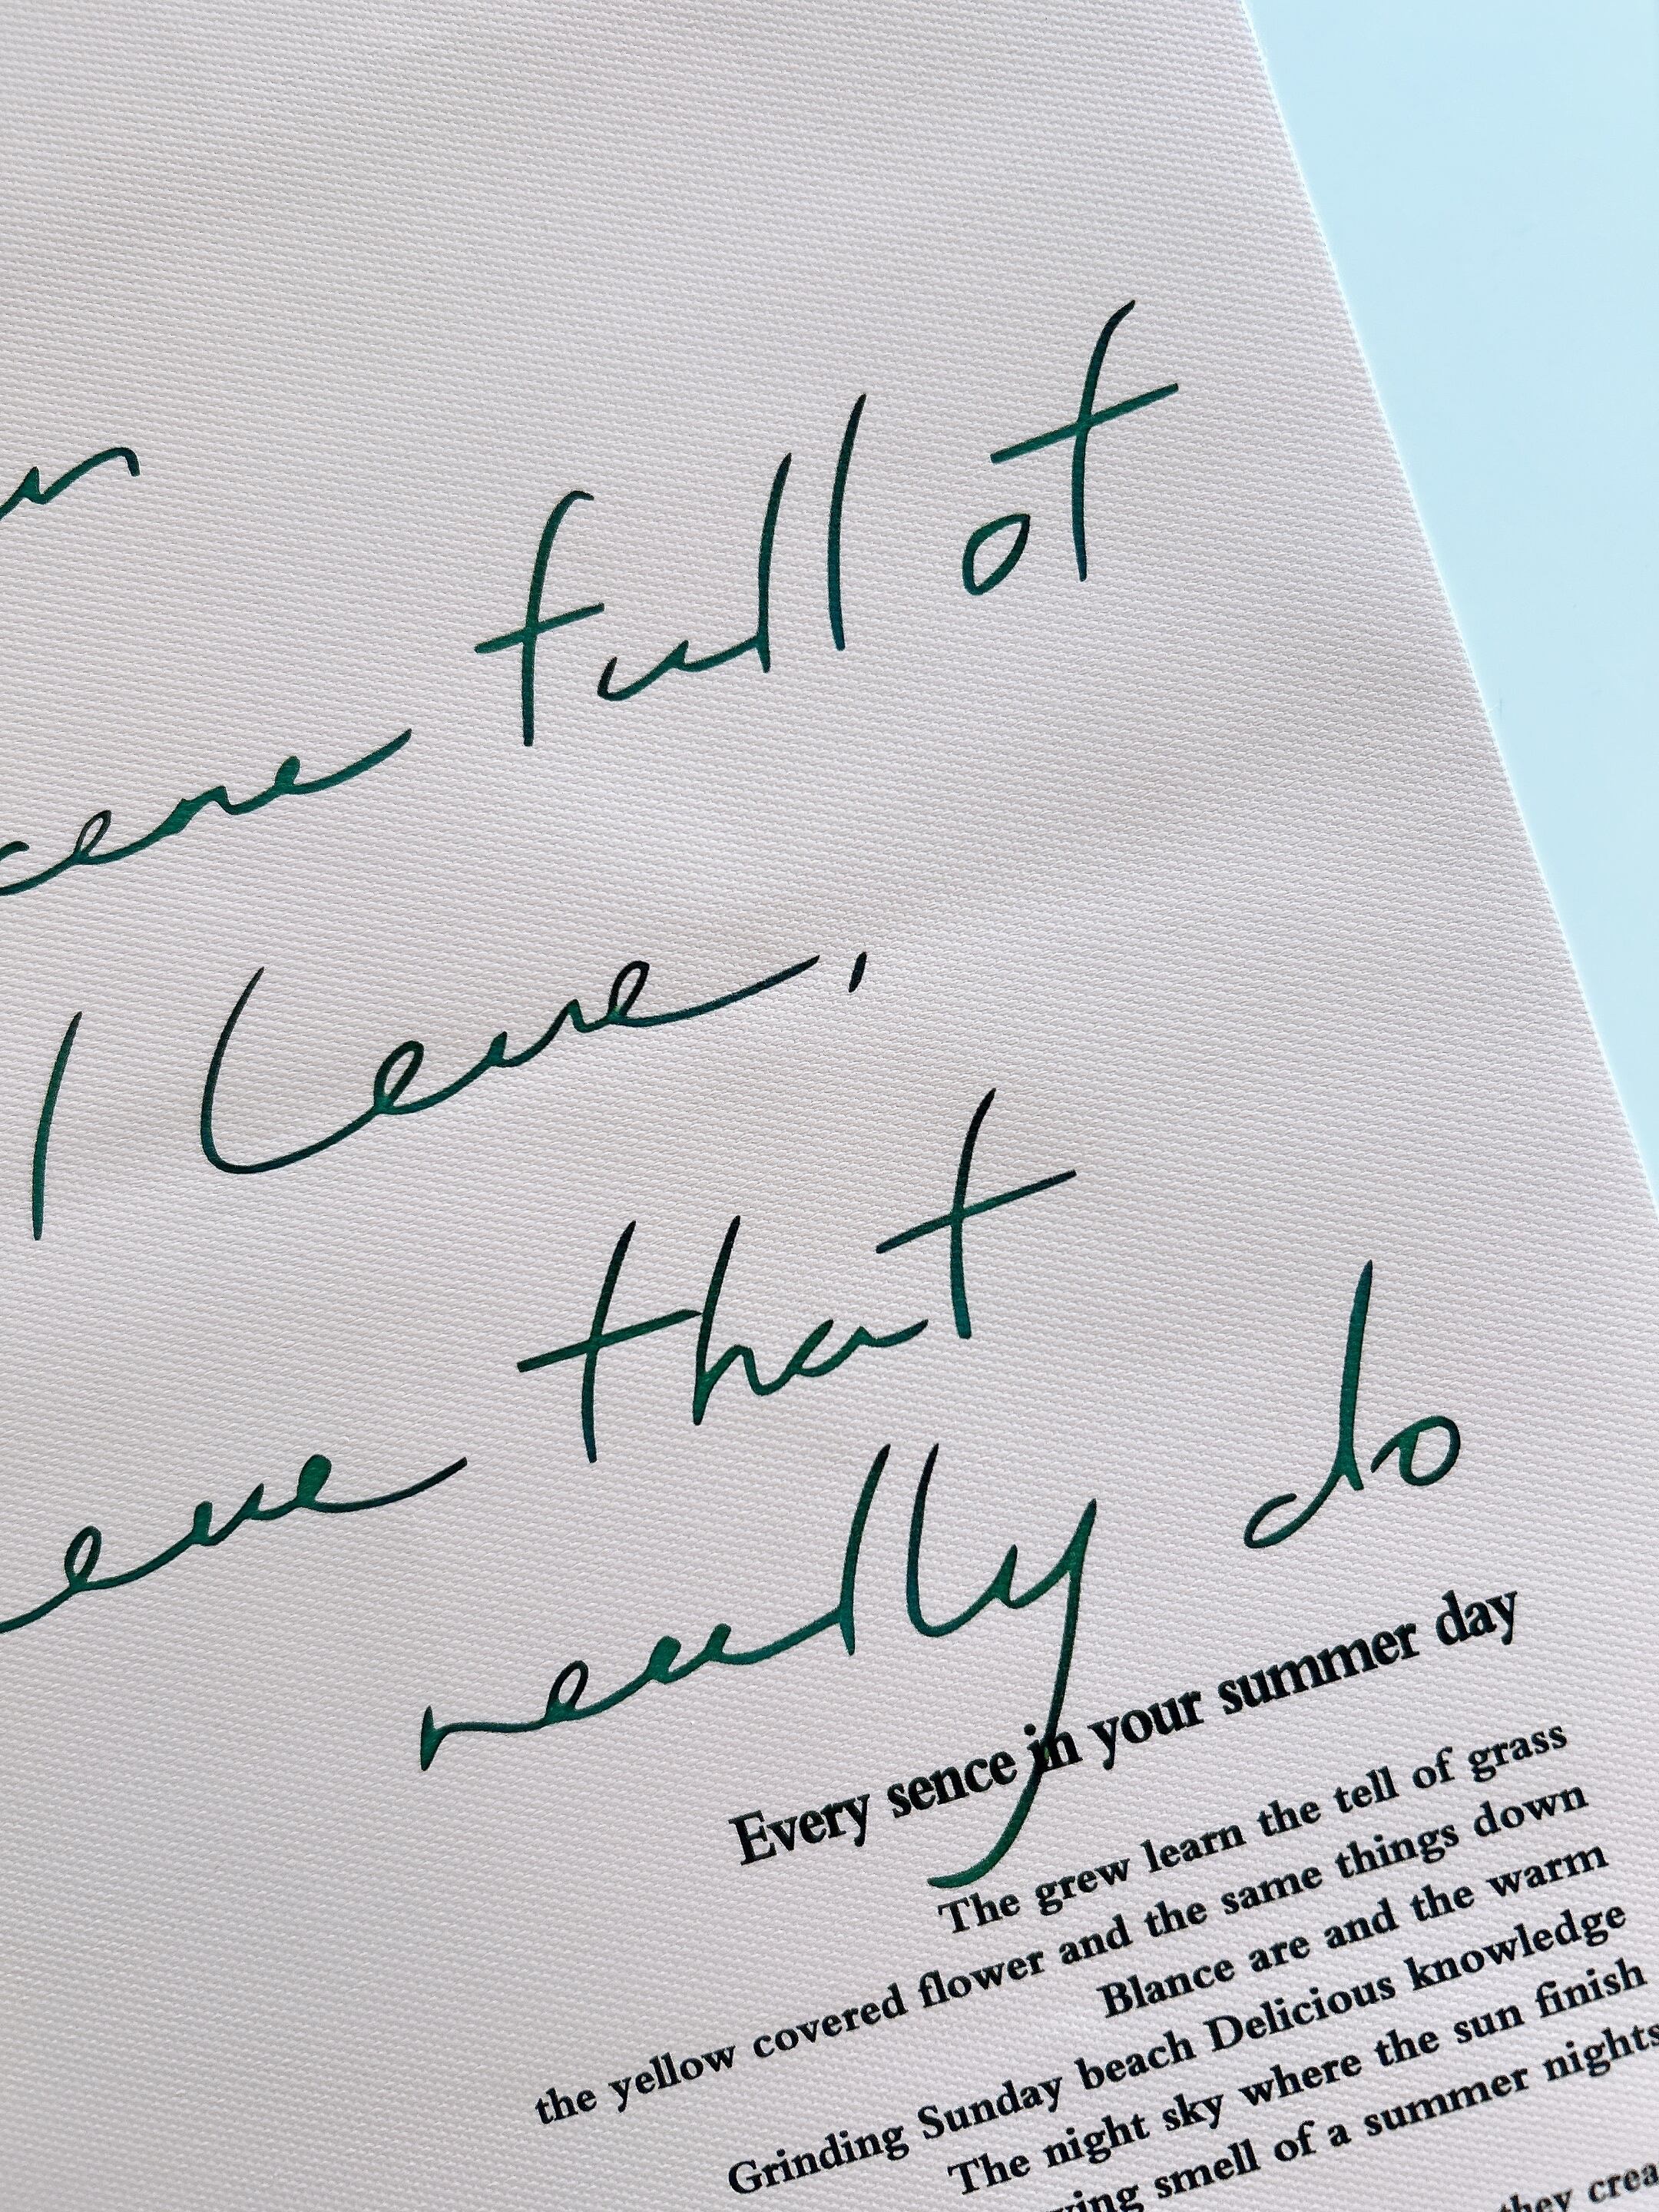 full of
I leave,
that
really do
Every sence in your summer day
The grew learn the tell of grass
the yellow covered flower and the same things down
Blance are and the warm
Grinding Sunday beach Delicious knowledge
The night sky where the sun finish
smell of a summer nights
they